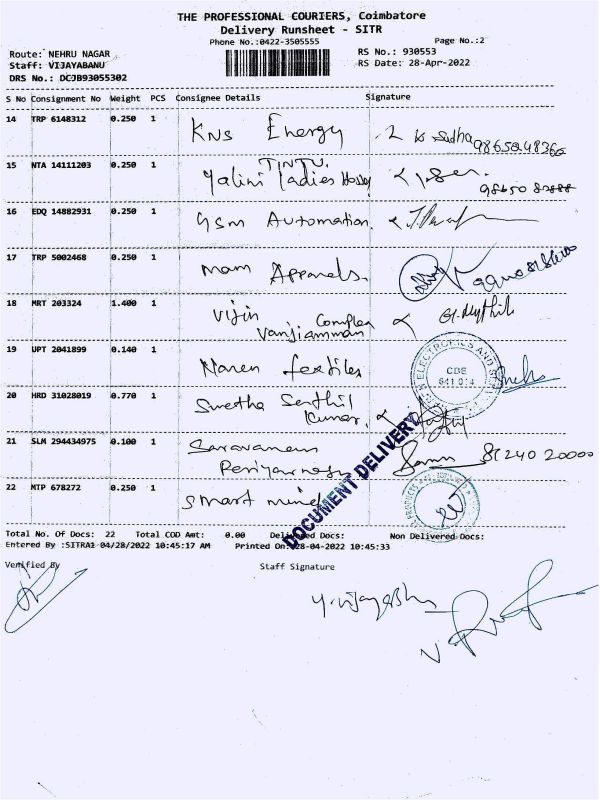 THE PROFESSIONAL COURIERS, Coimbatore
Delivery Runsheet - SITR
Phone No.:0422-3505555 Page No.:2
Route: NEHRU NAGAR RS No.: 930553
Staff: VIJAYABANU RS Date: 28-Apr-2022
DRS No.: DCJB93055302
S No Consignment No Weight PCS Consignee Details Signature
14 TRP 6148312 0.250 1 KNS Energy
15 NTA 14111203 0.250 1 TINTU
Yalini Ladies
16 EDQ 14882931 0.250 1 GSM Automation.
17 TRP 5002468 0.250 1 Mam Apparels.
18 MRT 203324 1.400 1 Vijin Complex
Vanjiamman
19 UPT 2041899 0.140 1 Naren Textiles
ELECTRONICS AND
CBE
641 014
20 HRD 31028019 0.770 1 Swetha Senthil
Kumar.
21 SLM 294434975 0.100 1 Saravanan 81240 20000
22 MTP 678272 0.250 1 Smart mind
DOCUMENT DELIVERY
Total No. Of Docs: 22 Total COD Amt: 0.00 Delivered Docs: Non Delivered Docs:
Entered By :SITRA1 04/28/2022 10:45:17 AM Printed On: 28-04-2022 10:45:33
Verified By Staff Signature